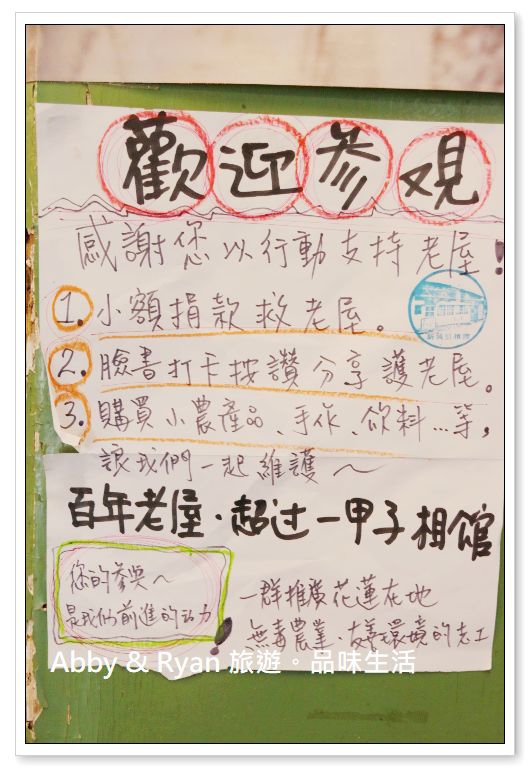 歡迎参观
感謝您以行動支持老屋！
1. 小額捐款救老屋。
2. 臉書打卡按讚分享護老屋。
3. 購買小農產品、手作、飲料…等，
讓我們一起維護～
百年老屋．超过一甲子相館
您的參與～
是我们前進的动力！
一群推廣花蓮在地
無毒農業．友善環境的志工
Abby & Ryan 旅遊。品味生活